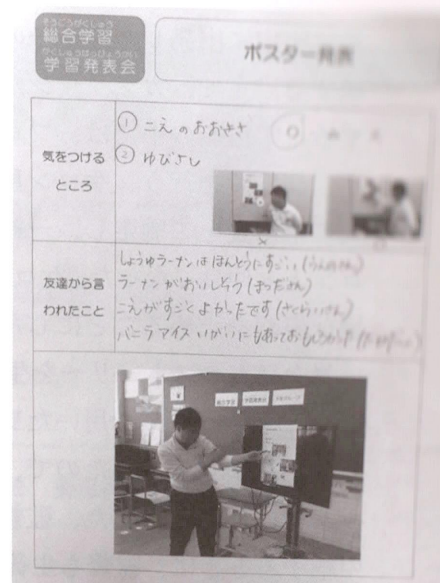 そうごうがくしゅう
総合学習
がくしゅうはっぴょうかい
学習発表会
ポスター発表
気をつける
ところ
① こえ の おおきさ
② ゆびさし
友達から言
われたこと
しょうゆラーメンは ほんとうに すごい
ラーメンが おいしそう
こえが すごく よかった です (さくらいさん)
バニラアイス いがいにも あって おもしろかった
総合学習
学習発表会